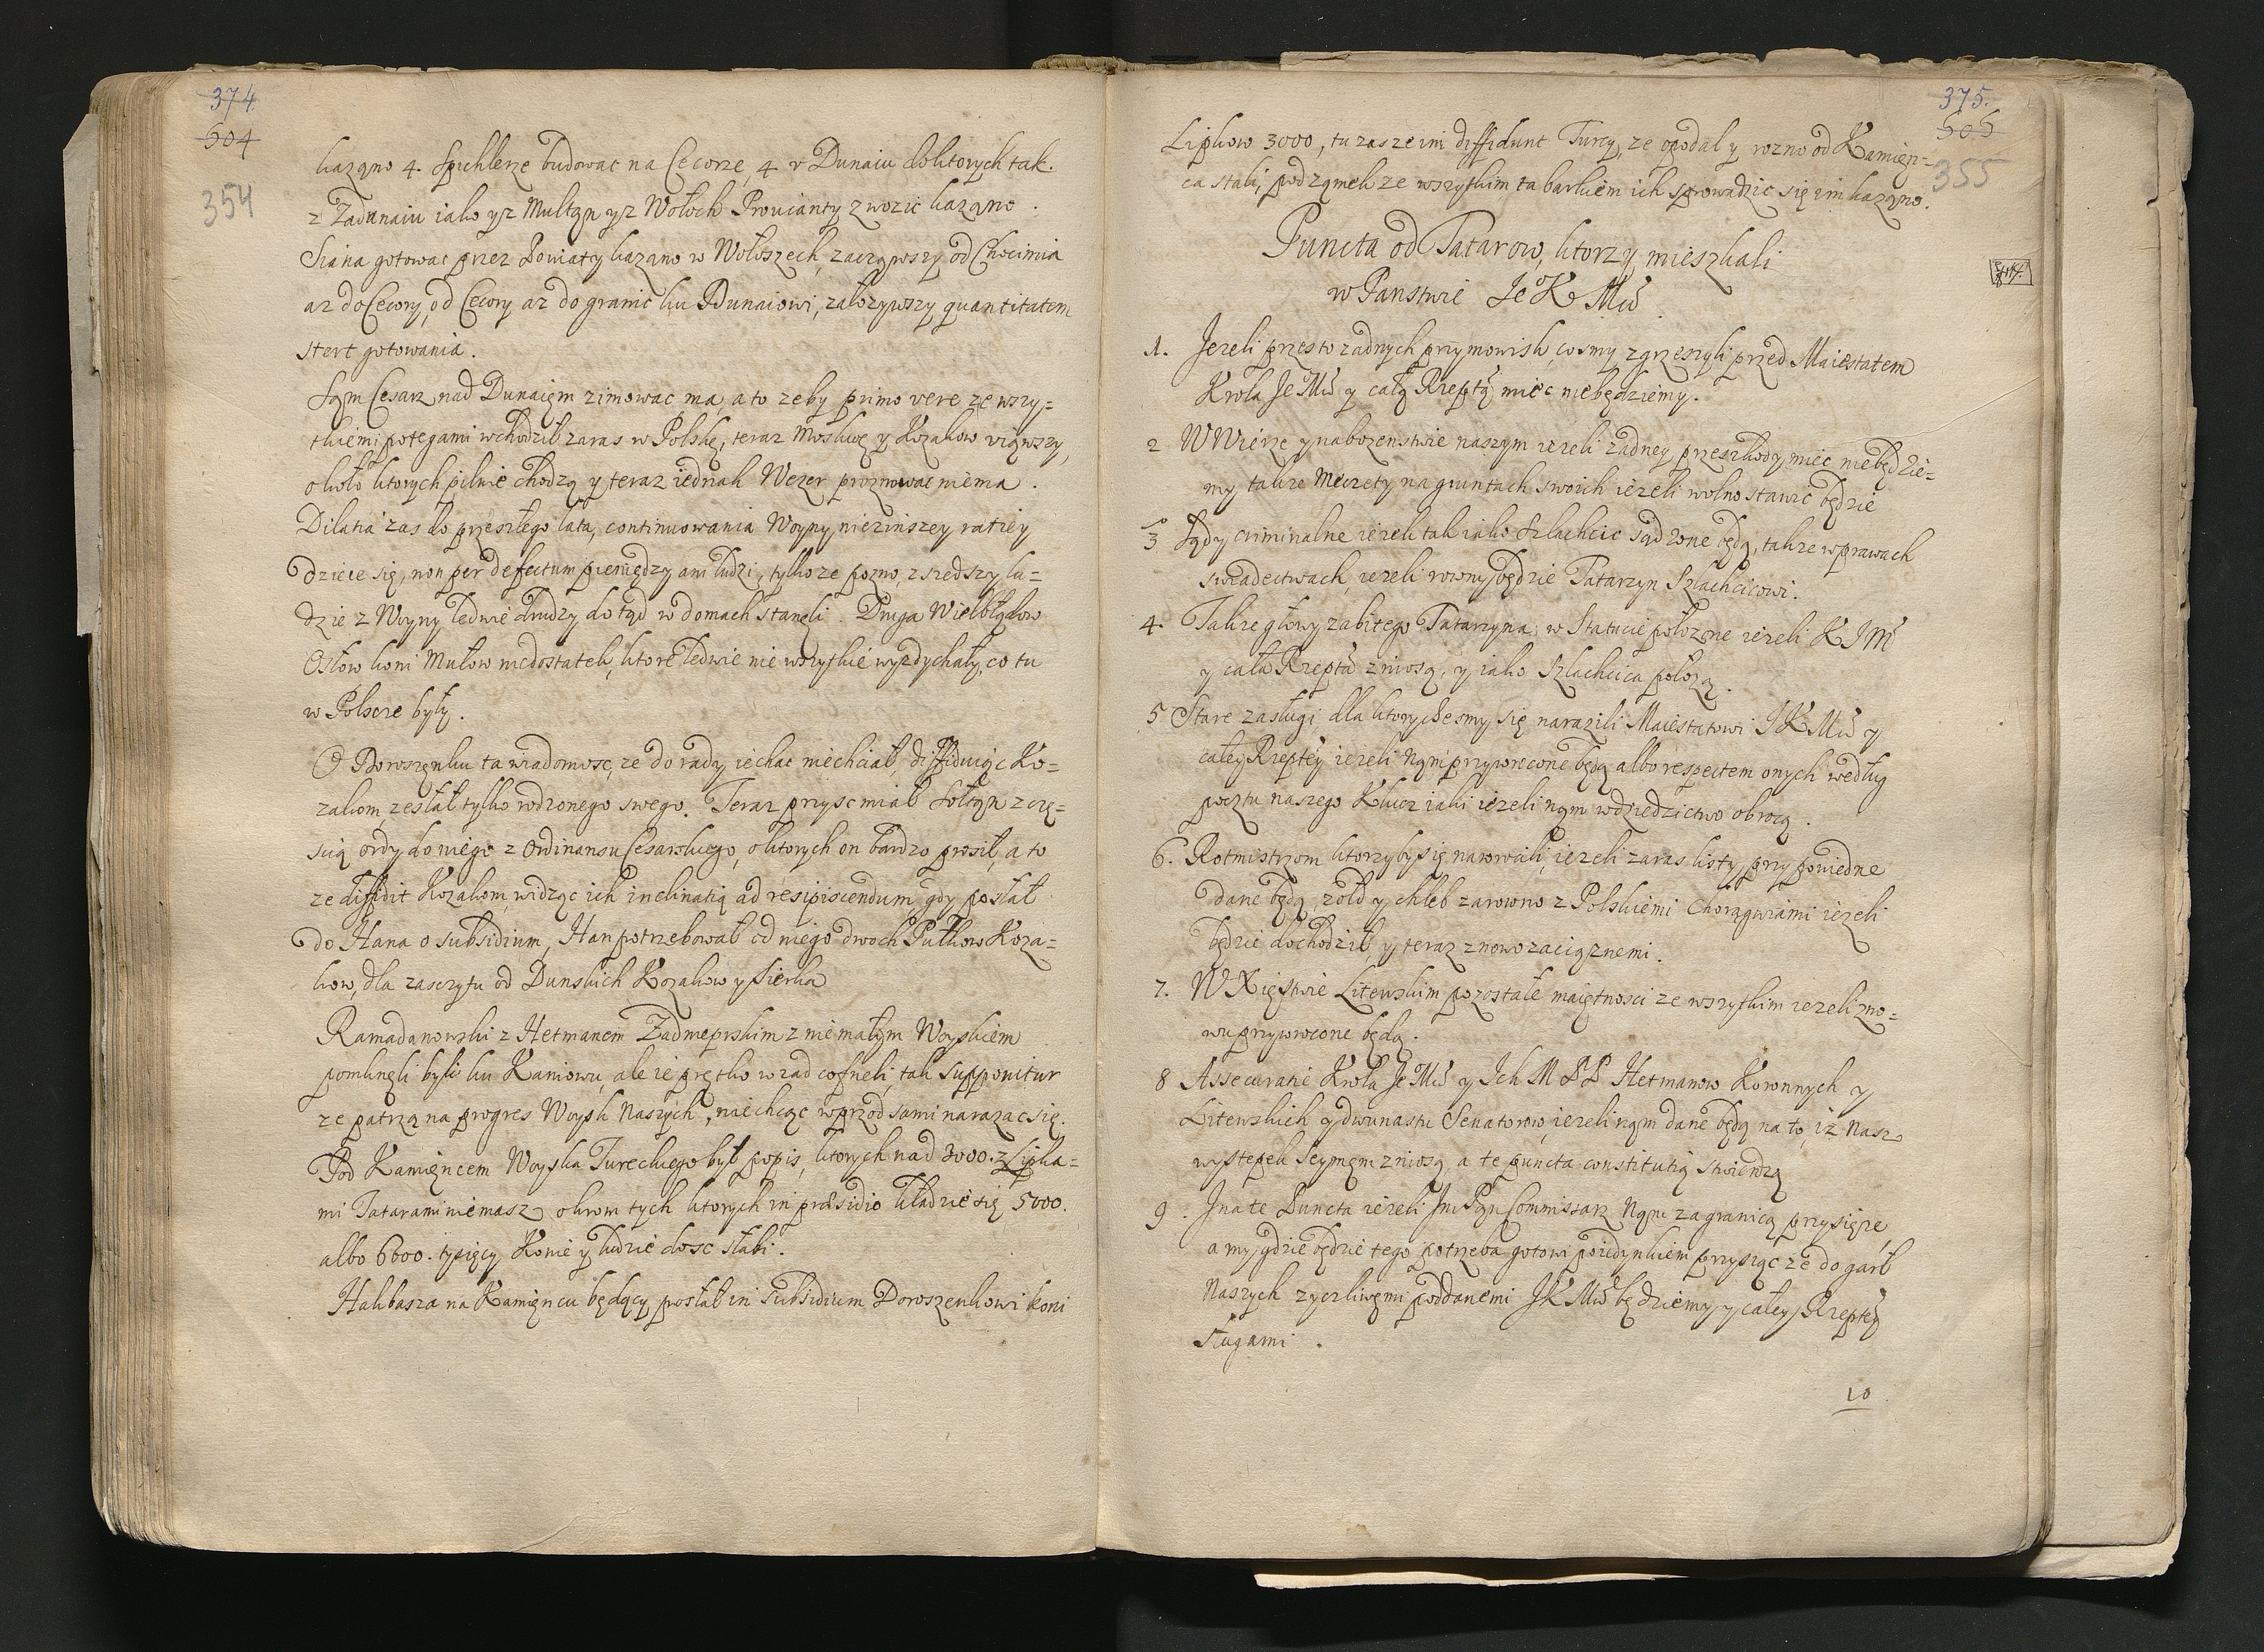 374
504
354
kazano 4. Spichlerze budowac na Cecorze, 4 v Dunaiu do ktorych tak
z Zadunaiu iako y z Multan y z Wołoch Prouianty zwozic kazano.
Siana gotowac przez Powiaty kazano w Wołoszech, zacząwszy od Chocimia
az do Cecory, od Cecory az do granic ku Dunaiowi, załozywszy quantitatem
stert gotowania.
Sąm Cesarz nad Dunaięm zimowac ma, a to zeby primo vere ze wszy=
tkiemi potęgami wchodził zaras w Polskę, teraz Moskwę y Kozakow viąwszy,
około ktorych pilnie chodzą y teraz iednak Wezer proznowac niema.
Dilatia zas do przeszłego lata, continuowania Woyny nie zinszey ratiey
dzieie się, non per defectum pieniędzy ani ludzi, tylko ze pozno zszedszy lu=
dzie z Woyny ledwie drudzy do tąd w domach stanęli. Druga Wielbłądow
Osłow koni Mułow niedostatek, ktore ledwie nie wszytkie wyzdychały, co tu
w Polscze były.
O Doroszęnku ta wiadomosc, ze do rady iechac niechciał, diffiduiąc Ko=
zakom, zesłał tylko rodzonego swego. Teraz przysc miał Sołtąn z czę=
scią ordy do niego z Ordinansu Cesarskiego, o ktorych on bardzo prosił, a to
ze diffidit Kozakom, widząc ich inclinatią ad resipiscendum, gdy posłał
do Hana o subsidium, Han potrzebował od niego dwoch Pułkow Koza=
kow, dla zasczytu od Dunskich Kozakow y Sierka
Ramadanowski z Hetmanem Zadnieprskim z niemałym Woyskiem
pomknęli byli ku Kaniowu, ale ie prętko w zad cofneli, tak supponitur
ze patrzą na progres Woysk Naszych, niechcąc wprzod sami narazac się.
Pod Kamięncem Woyska Tureckiego był popis, ktorych nad 3000. z Lipka=
mi Tatarami niemasz, okrom tych ktorych in præsidio kładzie się 5000.
albo 6000. tysięcy Konie y ludzie dosc słabi.
Halibasza na Kamięncu będący posłał in subsidium Doroszenkowi koni
375.
505
355
Lipkow 3000, tu zas ze im diffidunt Turcy, ze opodal y rozno od Kamięn=
ca stali, pod zamek ze wszytkim tabarkiem ich sprowadzic się im kazano.
Puncta od Tatarow, ktorzy mieszkali
w Panstwie Je K Mci
1. Jezeli przesto zadnych przymowisk, cosmy zgrzeszyli przed Maiestatem
Krola Je Mci y całą Rzeptą miec niebędziemy.
2 W Wierze y nabozenstwie naszym iezeli zadney przeszkody miec niebędzie=
my takze Meczety na gruntach swoich iezeli wolno stawic będzie
3 Sądy criminalne iezeli tak iako Szlachcic sądzone będą, takze w prawach
swiadectwach, iezeli rowny będzie Tatarzyn Szlachcicowi.
4. Takze głowy zabitego Tatarzyna, w Statucie połozone iezeli K J M
y cała Rzepta zniosą, y iako Szlachcica połozą.
5 Stare zasługi dla ktorychesmy się narazili Maiestatowi J K Mci y
całey Rzeptey iezeli nąm przywrocone będą albo respectem onych według
pocztu naszego Klucz iaki iezeli nąm w dziedzictwo obrocą.
6. Rotmistrzom ktorzyby się nawrocili, iezeli zaras listy przypowiedne
dane będą, zołd y chleb zarowno z Polskiemi Chorągwiami iezeli
będzie dochodził, y teraz znowo zaciąznemi.
7. W Xięstwie Litewskim pozostałe maiętnosci ze wszytkim iezeli zno=
wu przywrocone będą.
8 Assecuratie Krola Je Mci y Ich M P P Hetmanow Koronnych y
Litewskich y dwunastu Senatorow, iezeli nąm dane będą na to, iz Nasz
występek Seymęm zniosą, a te puncta constitutią stwierdzą
9. Jna te Puncta iezeli Jm Pąn Commissarz Nąm za granicą przysięze,
a my gdzie będzie tego potrzeba gotowi poiedynkiem przysiąc ze do garł
Naszych zyczliwęmi poddanemi J K Mci będziemy y całey Rzeptey
sługami.
10